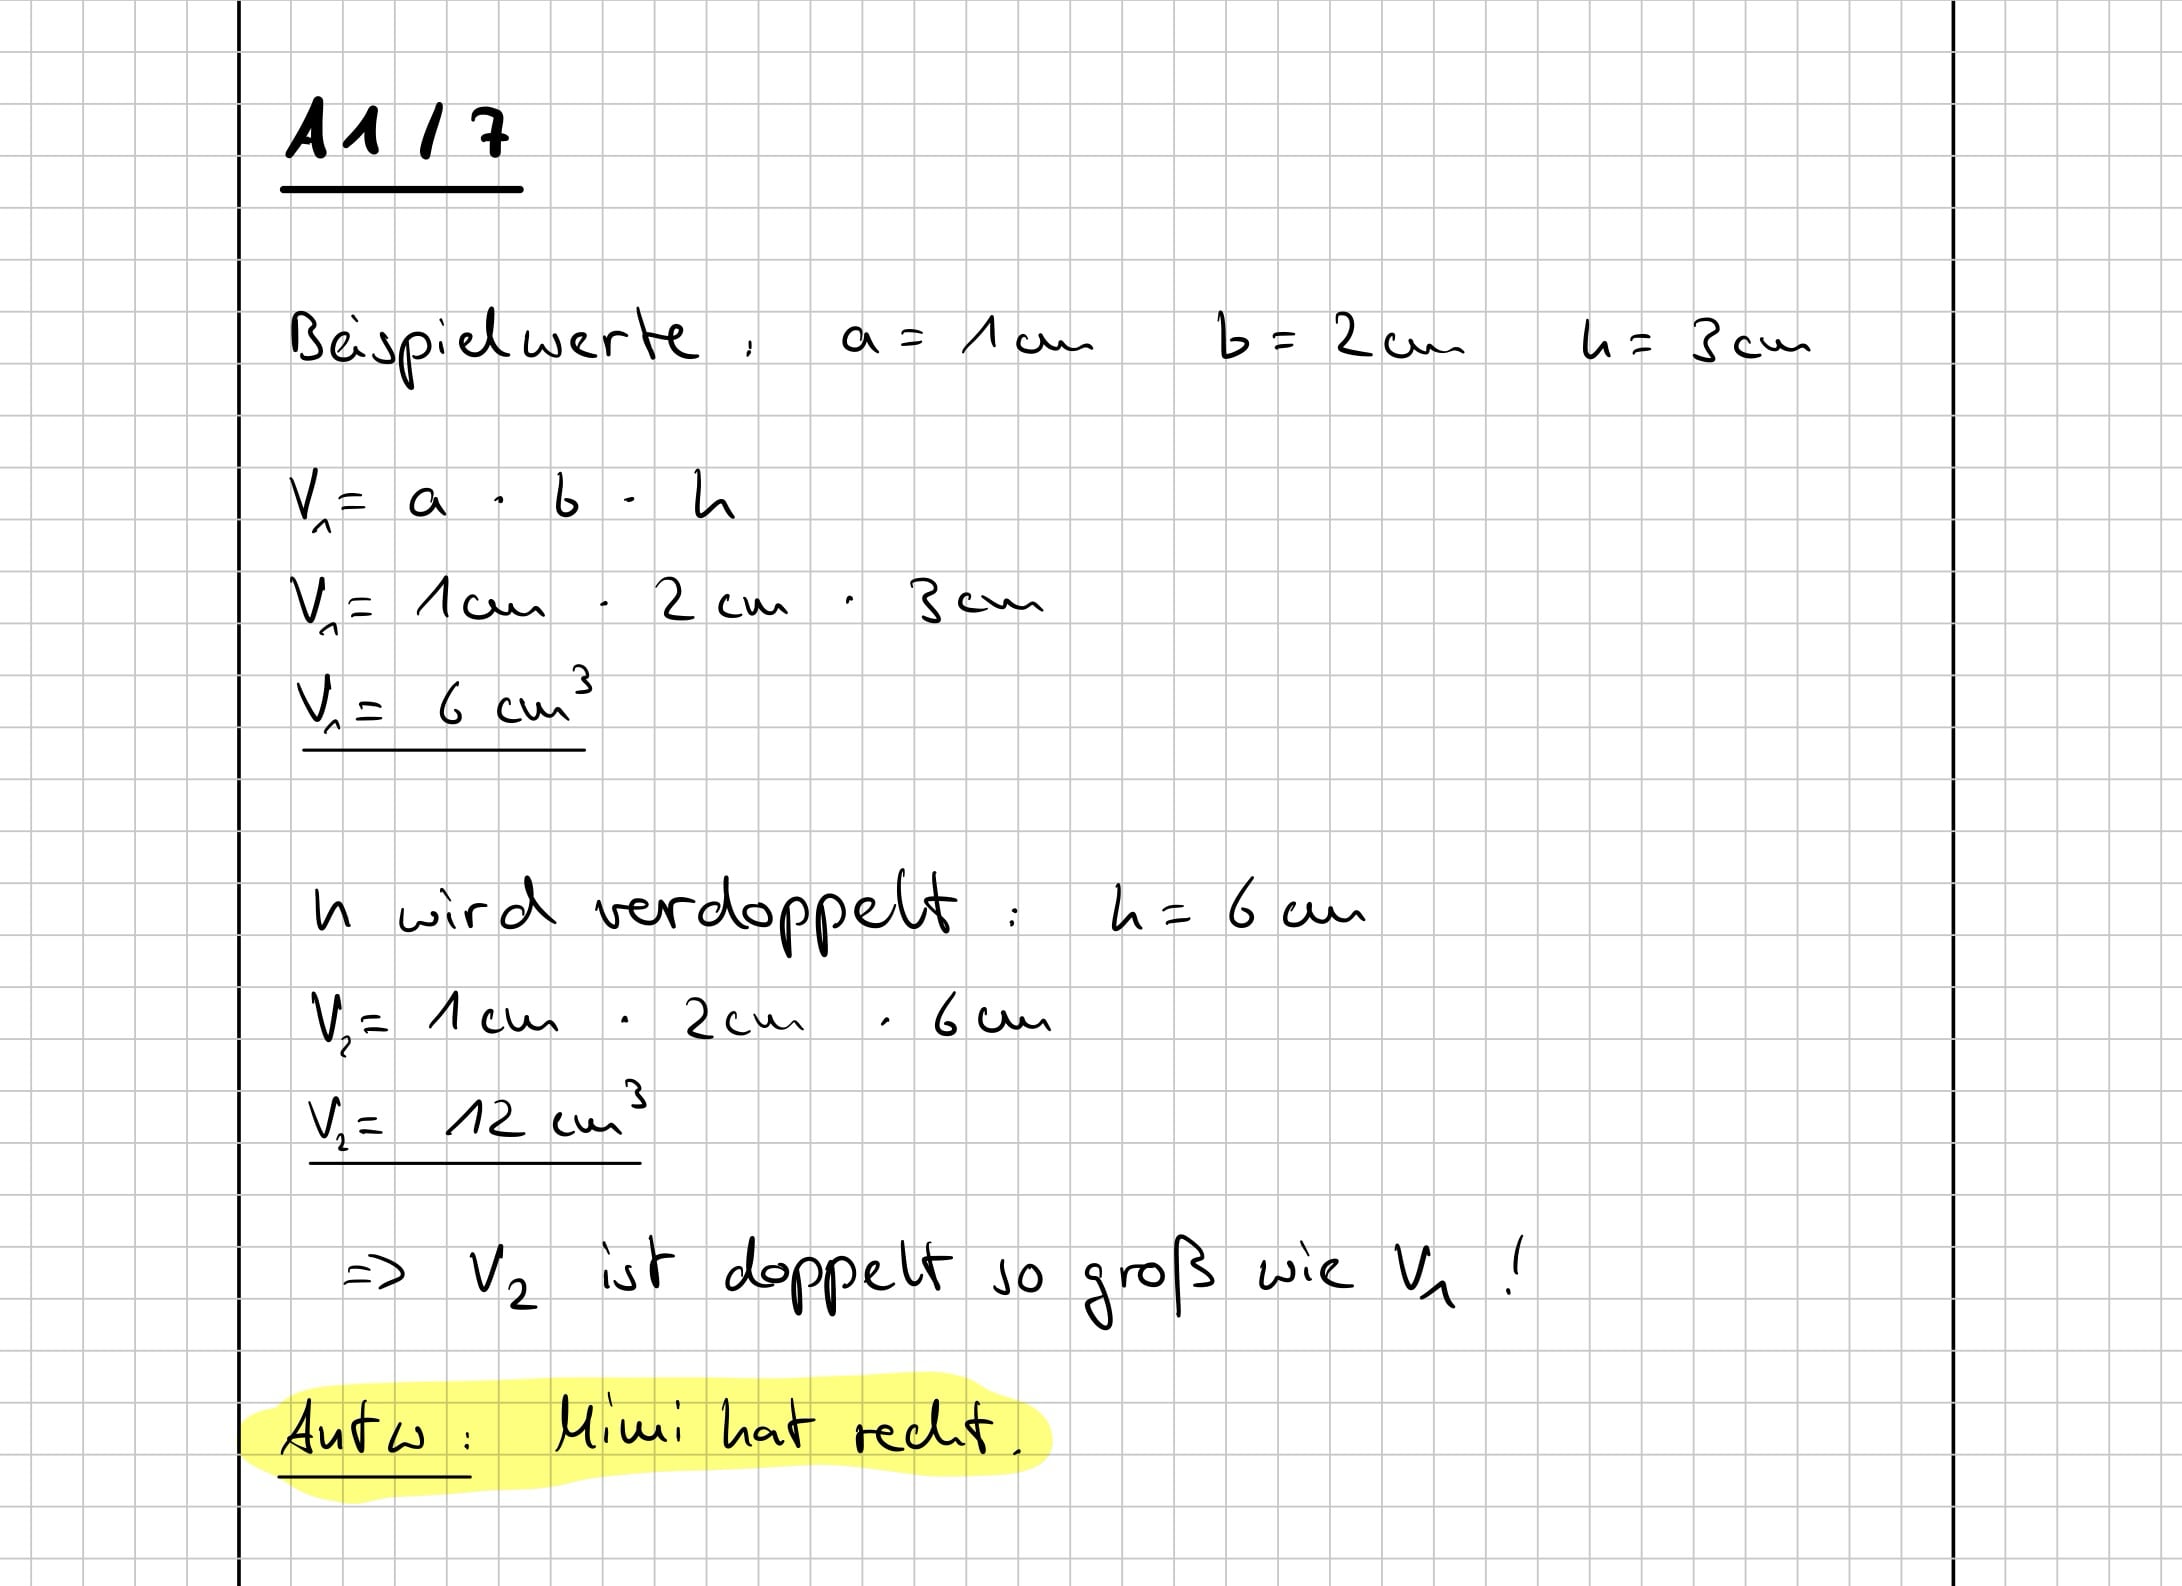 A1 / 7
Beispielwerte : a = 1 cm b = 2 cm h = 3 cm
V₁ = a · b · h
V₁ = 1 cm · 2 cm · 3 cm
V₁ = 6 cm³
h wird verdoppelt : h = 6 cm
V₂ = 1 cm · 2 cm · 6 cm
V₂ = 12 cm³
=> V₂ ist doppelt so groß wie V₁ !
Antw : Mimi hat recht.